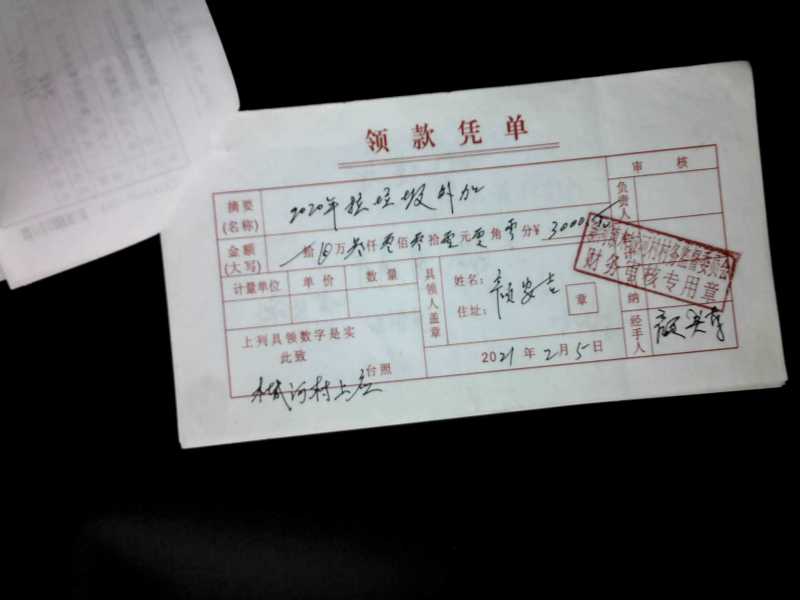 领款凭单
审核
摘要(名称) 2020年拉垃圾外加
负责人
金额(大写) 拾 万叁仟零佰零拾零元零角零分¥ 3000
计量单位 单价 数量
具领人盖章
姓名: 安吉
住址:
章
财务审核专用章
纳
上列具领数字是实
此致
台照
河村上庄
2021年2月5日
经手人